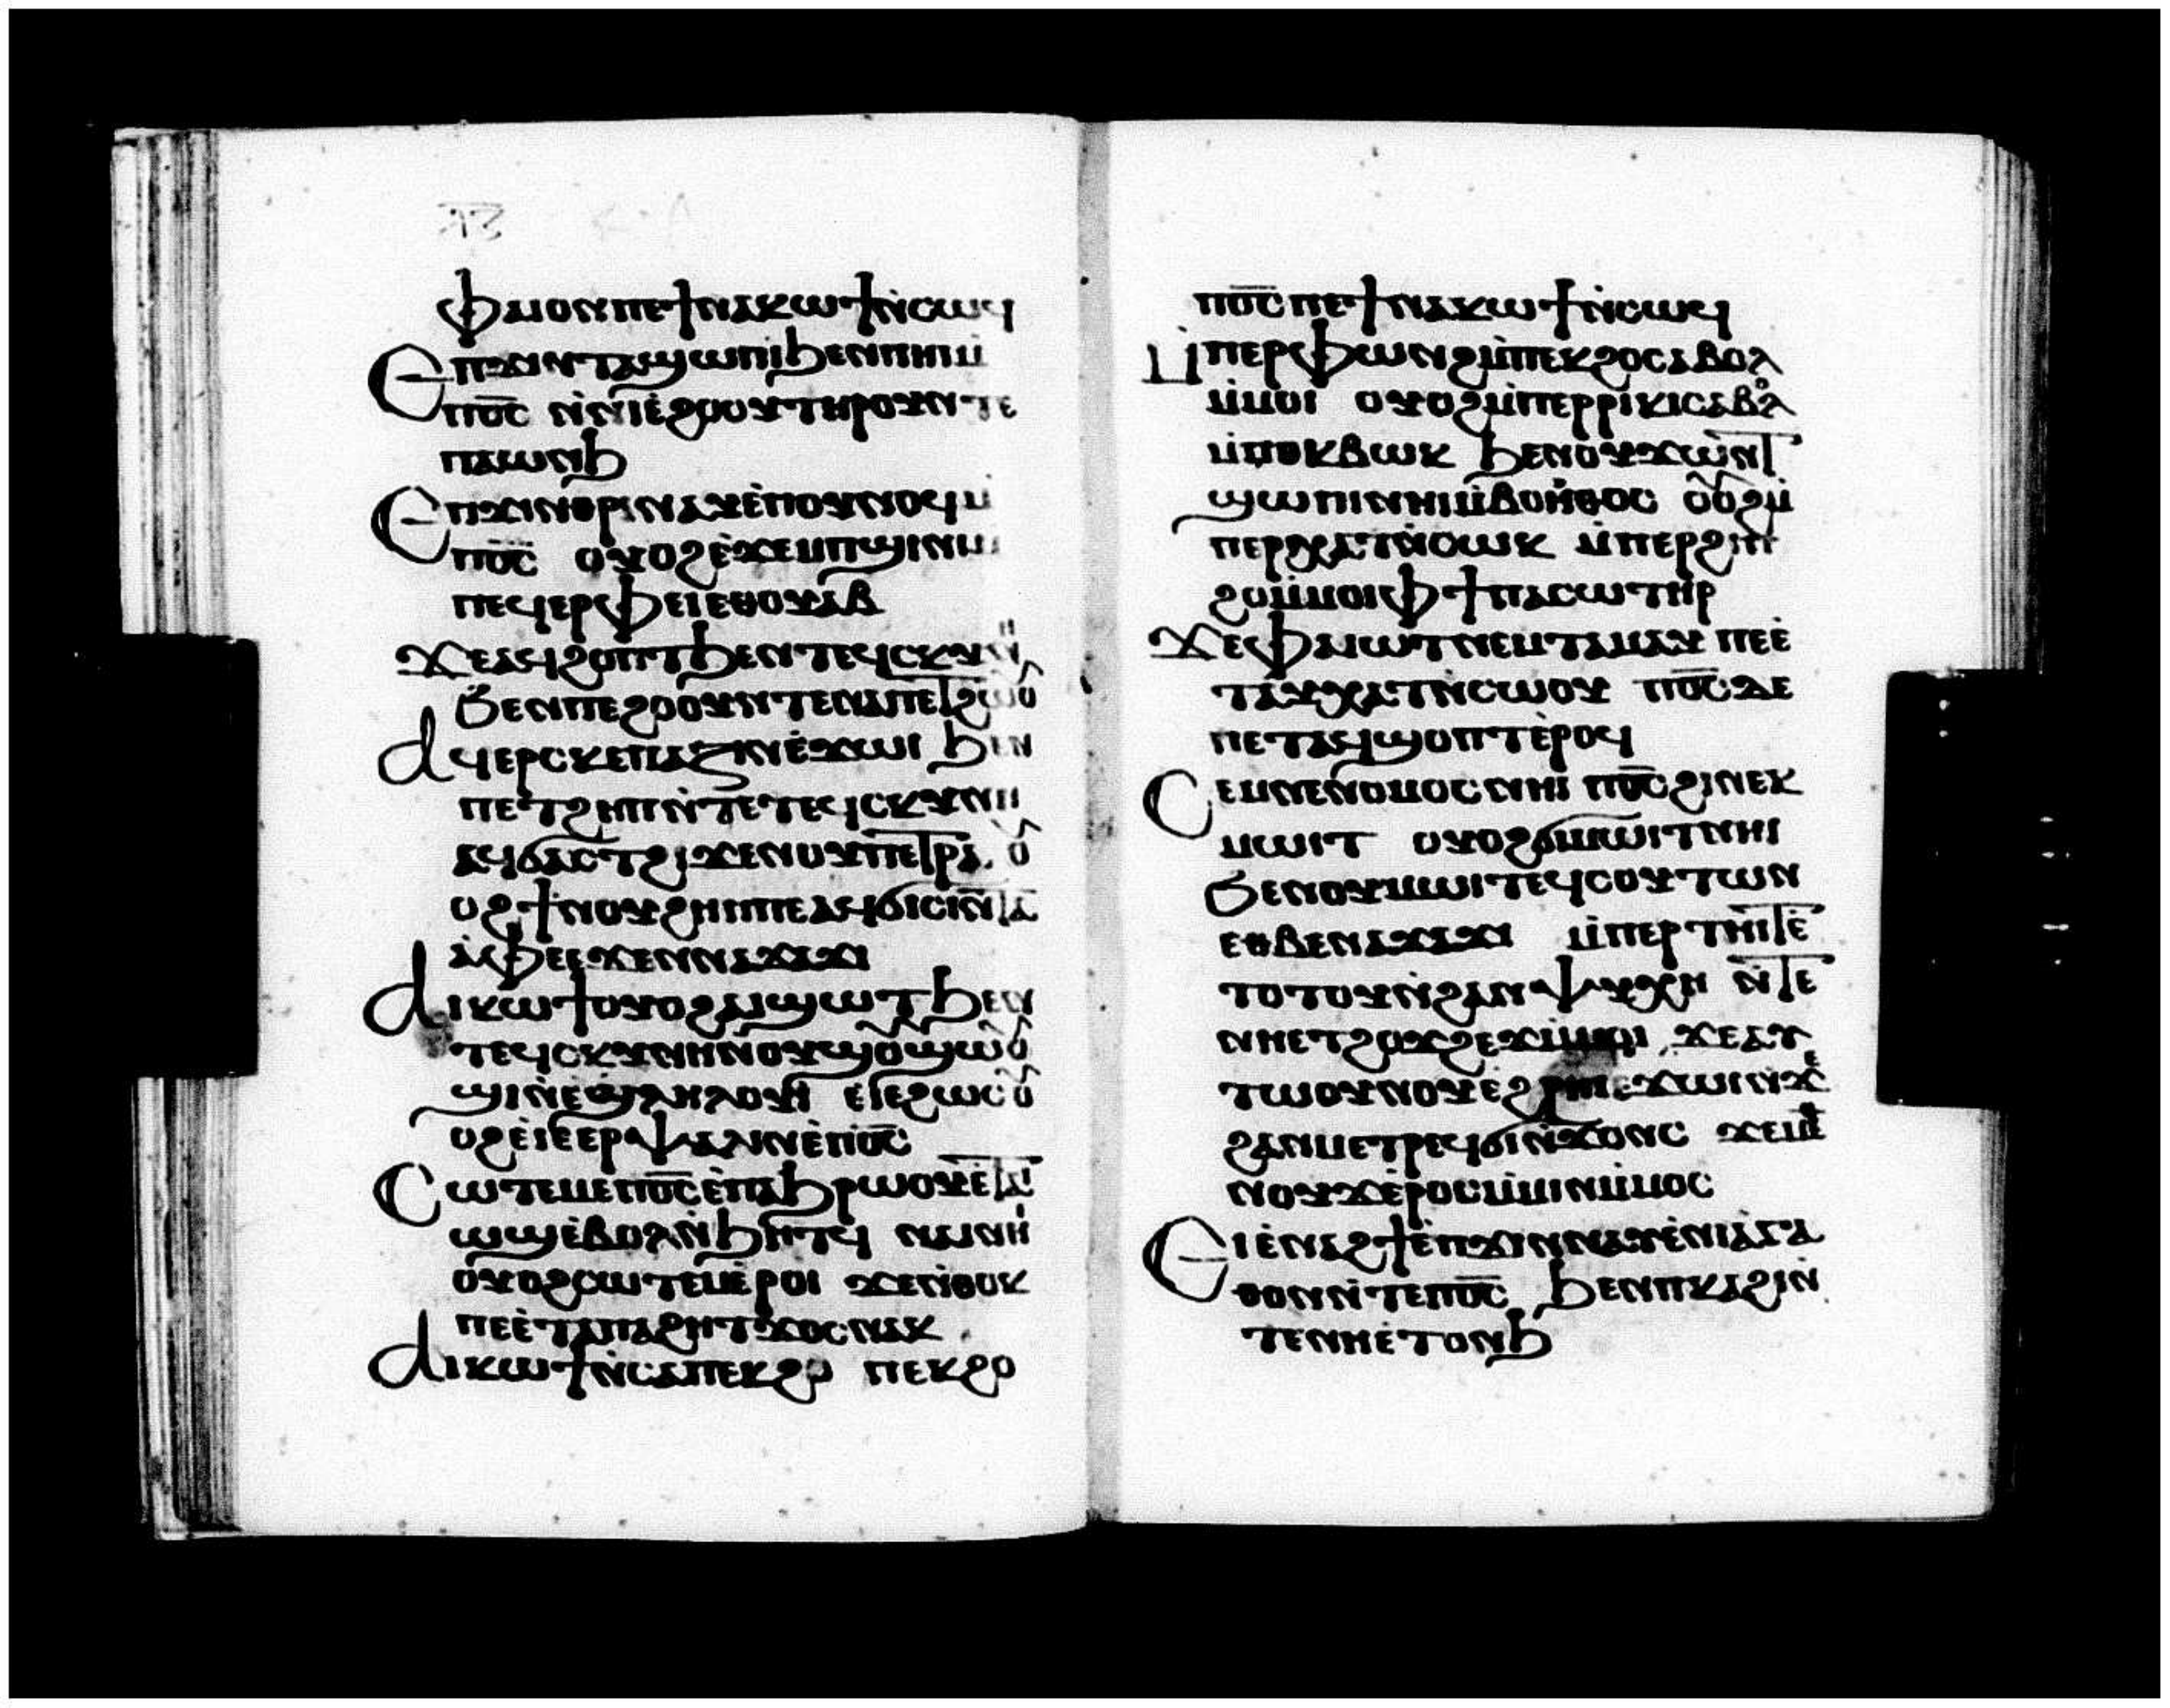 ⲫⲁⲓⲟⲛⲡⲉϯⲛⲁⲕⲱϯⲛ̀ⲥⲱϥ
Ⲉⲡϫⲓⲛⲧⲁϣⲱⲡⲓϧⲉⲛⲡⲏⲓⲙ̀
ⲡⲟ̅ⲥ̅ ⲛ̀ⲛⲓⲉ̀ϩⲟⲟⲩⲧⲏⲣⲟⲩⲛⲧⲉ
ⲡⲁⲱⲛϧ
Ⲉⲡϫⲓⲛⲑⲣⲓⲛⲁⲩⲉ̀ⲡⲟⲩⲛⲟϥⲙ̀
ⲡⲟ̅ⲥ̅ ⲟⲩⲟϩⲉ̀ϫⲉⲙⲡϣⲓⲛⲓⲙ
ⲡⲉϥⲉⲣⲫⲉⲓⲉⲑⲟⲩⲁⲃ
ϫⲉⲁϥϩⲟⲡⲧϧⲉⲛⲧⲉϥⲥⲕⲩⲛⲏ
Ϧⲉⲛⲡⲉϩⲟⲟⲩⲛⲧⲉⲛⲁⲡⲉⲧϩⲱⲟⲩ
Ⲁϥⲉⲣⲥⲕⲉⲡⲁⲍⲓⲛⲉ̀ϫⲱⲓ ϧⲉⲛ
ⲡⲉⲧϩⲏⲡⲛ̀ⲧⲉⲧⲉϥⲥⲕⲩⲛⲏ
ⲁϥϭⲁⲥⲧϩⲓϫⲉⲛⲟⲩⲡⲉⲧⲣⲁ. ⲟⲩ
ⲟϩϯⲛⲟⲩϩⲏⲡⲡⲉⲁϥϭⲓⲥⲓⲛⲧⲁ
ⲁ̀ⲫⲉⲉϫⲉⲛⲛⲁϫⲁϫⲓ
Ⲁⲓⲕⲱϯⲟⲩⲟϩⲁⲓϣⲱⲧϧⲉⲛ
ⲧⲉϥⲥⲕⲩⲛⲏⲛⲟⲩϣⲟⲩϣⲱⲟⲩ
ϣⲓⲛⲉ̀ϣⲗⲏⲗⲟⲩⲓ̀ ⲉⲓⲉϩⲱⲥⲟⲩ
ⲟϩⲉ̀ⲓⲉⲉⲣⲯⲁⲗⲓⲛⲉ̀ⲡⲟ̅ⲥ̅
Ⲥⲱⲧⲉⲙⲉⲡⲟ̅ⲥ̅ⲉ̀ⲡⲁϧⲣⲱⲟⲩⲉ̀ⲧⲁⲓ
ⲱϣⲉ̀ⲃⲟⲗⲛ̀ϧⲏⲧϥ ⲛⲁⲓⲛⲏⲓ
ⲟⲩⲟϩⲥⲱⲧⲉⲙⲉ̀ⲣⲟⲓ ϫⲉⲛ̀ⲑⲟⲕ
ⲡⲉⲉ̀ⲧⲁⲡⲁϩⲏⲧϫⲟⲥⲛⲁⲕ
Ⲁⲓⲕⲱϯⲛ̀ⲥⲁⲡⲉⲕϩⲟ ⲡⲉⲕϩⲟ
ⲡⲟ̅ⲥ̅ⲡⲉϯⲛⲁⲕⲱϯⲛ̀ⲥⲱϥ
Ⲙ̀ⲡⲉⲣⲫⲱⲛϩⲙ̀ⲡⲉⲕϩⲟⲥⲁⲃⲟⲗ
ⲙ̀ⲙⲟⲓ ⲟⲩⲟϩⲙ̀ⲡⲉⲣⲣⲓⲕⲓⲥⲁⲃⲟⲗ
ⲙ̀ⲡⲉⲕⲃⲱⲕ ϧⲉⲛⲟⲩϫⲱⲛⲧ
ϣⲱⲡⲓⲛⲏⲓⲙ̀ⲃⲟⲏ̀ⲑⲟⲥ ⲟⲩⲟϩⲙ̀
ⲡⲉⲣⲭⲁⲧⲛ̀ⲥⲱⲕ ⲙ̀ⲡⲉⲣϩⲓⲡ
ϩⲟⲙ̀ⲙⲟⲓⲫϯⲡⲁⲥⲱⲧⲏⲣ
ϫⲉⲫⲁⲓⲱⲧⲛⲉⲙⲧⲁⲙⲁⲩ ⲡⲉⲉ̀
ⲧⲁⲩⲭⲁⲧⲛ̀ⲥⲱⲟⲩ ⲡⲟ̅ⲥ̅ⲇⲉ
ⲡⲉⲧⲁϥϣⲟⲡⲧⲉ̀ⲣⲟϥ
Ⲥⲉⲙⲛⲉⲛⲟⲙⲟⲥⲛⲏⲓ ⲡⲟ̅ⲥ̅ϩⲓⲛⲉⲕ
ⲙⲱⲓⲧ ⲟⲩⲟϩϭⲓⲙⲱⲓⲧⲛⲏⲓ
Ϧⲉⲛⲟⲩⲙⲱⲓⲧⲉϥⲥⲟⲩⲧⲱⲛ
ⲉⲑⲃⲉⲛⲁϫⲁϫⲓ ⲙ̀ⲡⲉⲣⲧⲏⲓⲧⲉ̀
ⲧⲟⲧⲟⲩⲛ̀ϩⲁⲛⲯⲩⲭⲏ ⲛ̀ⲧⲉ
ⲛⲏⲉⲧϩⲟϫϩⲉϫⲙ̀ⲙⲟⲓ ϫⲉⲁⲩ
ⲧⲱⲟⲩⲛⲟⲩⲉ̀ϩⲣⲏⲓⲉϫⲱⲓⲛϫⲉ
ϩⲁⲛⲙⲉⲧⲣⲉϥϭⲓⲛ̀ϫⲟⲛⲥ ϫⲉⲙⲉ
ⲑⲛⲟⲩϫⲉ̀ⲣⲟⲥⲙ̀ⲙⲓⲛⲙ̀ⲙⲟⲥ
Ⲉⲓⲉ̀ⲛⲁϩϯⲉ̀ⲡϫⲓⲛⲛⲁⲩⲉ̀ⲛⲓⲁ̀ⲅⲁ
ⲑⲟⲛⲛ̀ⲧⲉⲡⲟ̅ⲥ̅ ϧⲉⲛⲡⲕⲁϩⲓⲛ̀
ⲧⲉⲛⲏⲉ̀ⲧⲟⲛϧ